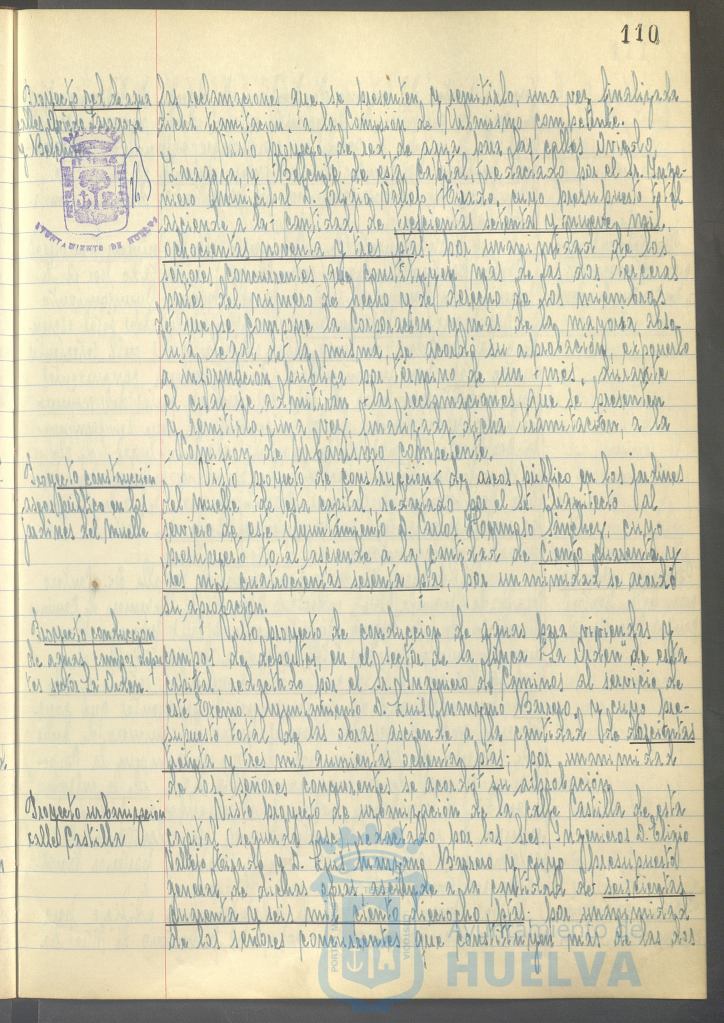 110
Proyecto red de agua
calles Oviedo, Zaragoza
y Belchite
las reclamaciones que se presenten, y remitirlo, una vez finalizada
dicha tramitación, a la Comisión de Urbanismo competente.
Visto proyecto de red de agua para las calles Oviedo,
Zaragoza y Belchite de esta capital, redactado por el Sr. Inge-
niero Municipal D. Eligio Vallejo Tirado, cuyo presupuesto total
asciende a la cantidad de trescientas setenta y nueve mil
ochocientas noventa y tres ptas; por unanimidad de los
señores concurrentes que constituyen más de las dos terceras
partes del número de hecho y de derecho de los miembros
de que se compone la Corporación, y más de la mayoría abso-
luta legal de la misma, se acordó su aprobación, exponerlo
a información pública por término de un mes, durante
el cual se admitirán las reclamaciones que se presenten
y remitirlo, una vez finalizada dicha tramitación, a la
Comisión de Urbanismo competente.
AYUNTAMIENTO DE HUELVA
Proyecto construcción
aseos público en los
jardines del Muelle
Visto proyecto de construcción de aseos público en los jardines
del Muelle de esta capital, redactado por el Sr. Arquitecto al
servicio de este Ayuntamiento D. Carlos Hermoso Sánchez, cuyo
presupuesto total asciende a la cantidad de ciento cuarenta y
tres mil cuatrocientas sesenta ptas, por unanimidad se acordó
su aprobación.
Proyecto conducción
de aguas campos depor-
tes sector La Orden.
Visto proyecto de conducción de aguas para viviendas y
campos de deportes, en el sector de la finca "La Orden" de esta
capital, redactado por el Sr. Ingeniero de Caminos al servicio de
este Excmo. Ayuntamiento D. Luis Manzano Barrero y cuyo pre-
supuesto total de las obras asciende a la cantidad de doscientas
treinta y tres mil quinientas ochenta ptas; por unanimidad
de los señores concurrentes se acordó su aprobación
Proyecto urbanización
calle Castilla
Visto proyecto de urbanización de la calle Castilla de esta
capital (segunda fase) redactado por los Sres. Ingenieros D. Eligio
Vallejo Tirado y D. Luis Manzano Barrero y cuyo presupuesto
general de dichas obras asciende a la cantidad de seiscientas
cuarenta y seis mil ciento dieciocho ptas; por unanimidad
de los señores concurrentes que constituyen más de las dos
Ayuntamiento de
HUELVA